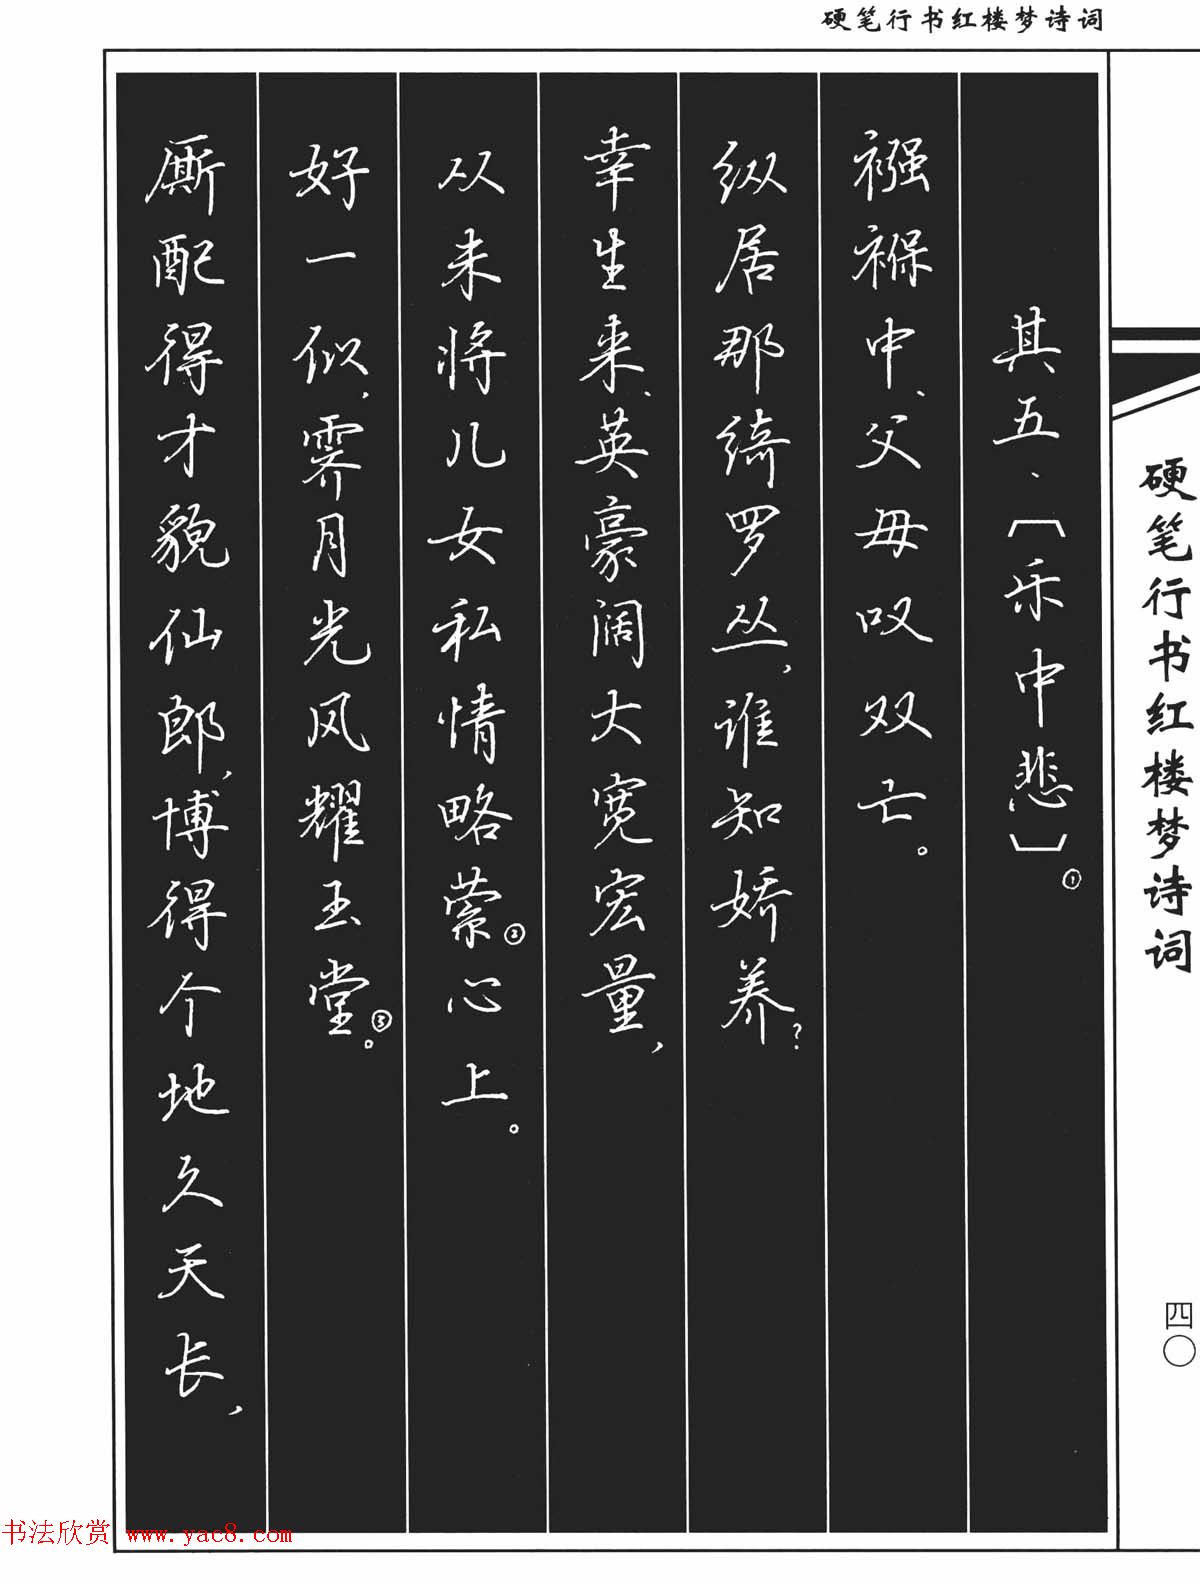 硬笔行书红楼梦诗词
其五、〔乐中悲〕①
襁褓中、父母叹双亡。
纵居那绮罗丛，谁知娇养？
幸生来、英豪阔大宽宏量，
从未将儿女私情略萦②心上。
好一似，霁月光风耀玉堂③。
厮配得才貌仙郎，博得个地久天长，
硬笔行书红楼梦诗词
四〇
书法欣赏 www.yac8.com